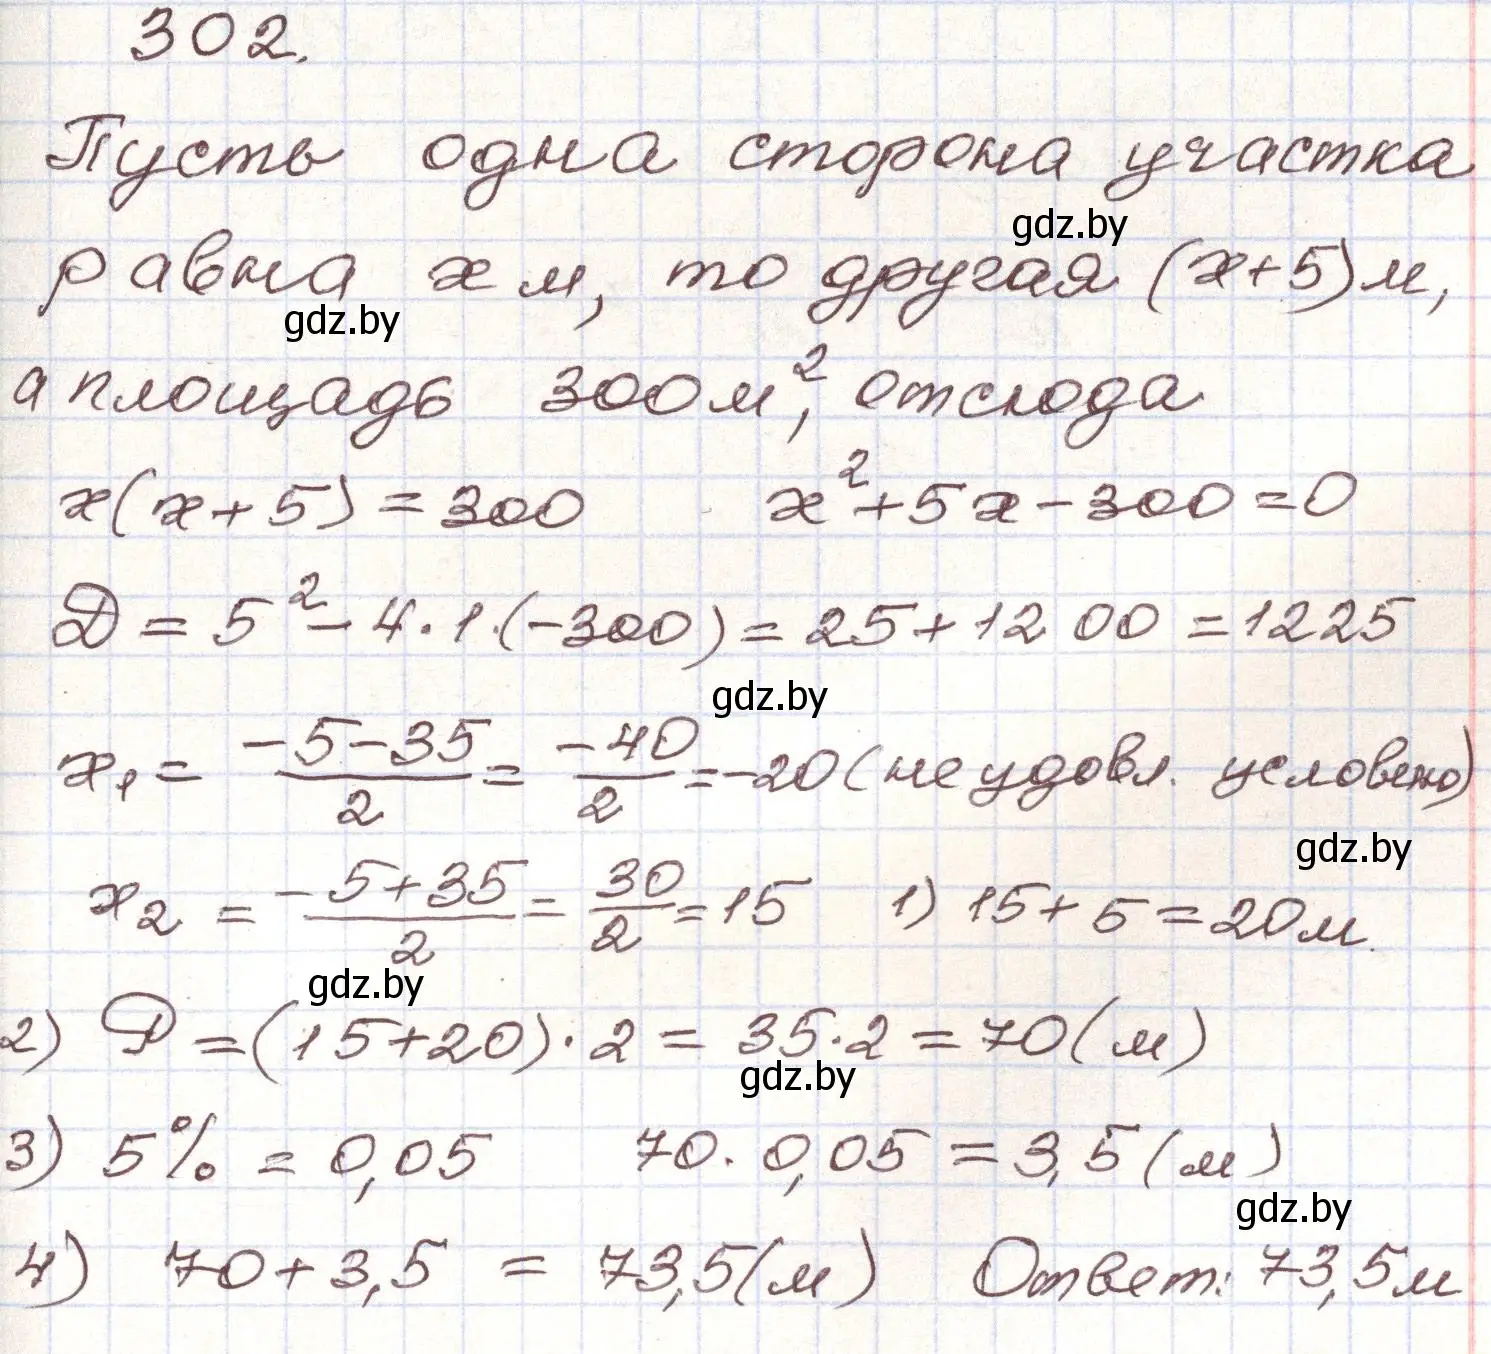 302.
Пусть одна сторона участка
gdz.by
равна x м, то другая (x+5) м,
gdz.by
а площадь 300 м², отсюда
x(x+5)=300 x²+5x-300=0
Д = 5² - 4·1·(-300) = 25+1200 = 1225
gdz.by
x₁ = (-5-35)/2 = -40/2 = -20 (не удовл. условию)
gdz.by
x₂ = (-5+35)/2 = 30/2 = 15 1) 15+5=20 м.
gdz.by
2) P = (15+20)·2 = 35·2 = 70 (м)
gdz.by
3) 5% = 0,05 70·0,05 = 3,5 (м)
gdz.by
4) 70+3,5 = 73,5 (м) Ответ: 73,5 м